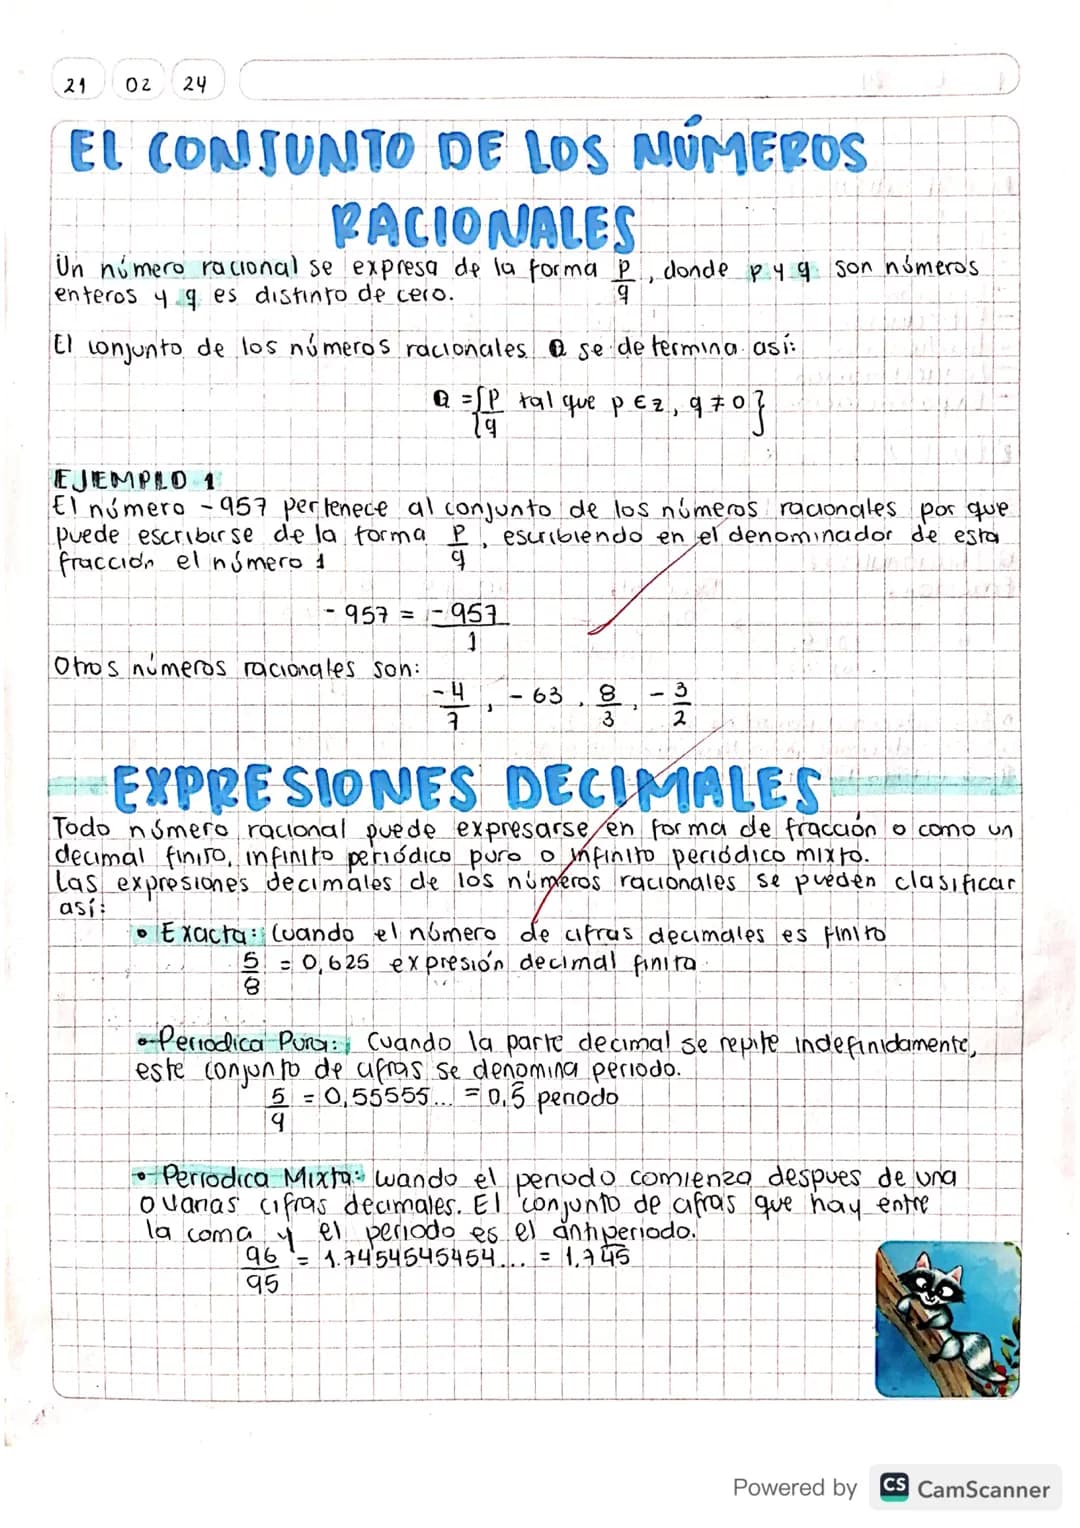 21 02 24
EL CONJUNTO DE LOS NÚMEROS
RACIONALES
Un número racional se expresa de la forma p/q, donde p y q son números
enteros y q es distinto de cero.
El conjunto de los números racionales Q se determina así:
Q = {p/q tal que p ∈ z, q ≠ 0}
EJEMPLO 1
El número -957 pertenece al conjunto de los números racionales por que
puede escribirse de la forma p/q, escribiendo en el denominador de esta
fracción el número 1
-957 = -957/1
Otros números racionales son:
-4/7, -63, 8/3, -3/2
EXPRESIONES DECIMALES
Todo número racional puede expresarse en forma de fracción o como un
decimal finito, infinito periódico puro o infinito periódico mixto.
Las expresiones decimales de los números racionales se pueden clasificar
así:
• Exacta: Cuando el número de cifras decimales es finito
5/8 = 0,625 expresión decimal finita
• Periodica Pura: Cuando la parte decimal se repite indefinidamente,
este conjunto de cifras se denomina periodo.
5/9 = 0,55555... = 0,5̄ periodo
• Periodica Mixta: Cuando el periodo comienza despues de una
o varias cifras decimales. El conjunto de cifras que hay entre
la coma y el periodo es el antiperiodo.
96/95 = 1.7454545454... = 1,74̅5̅
Powered by CS CamScanner